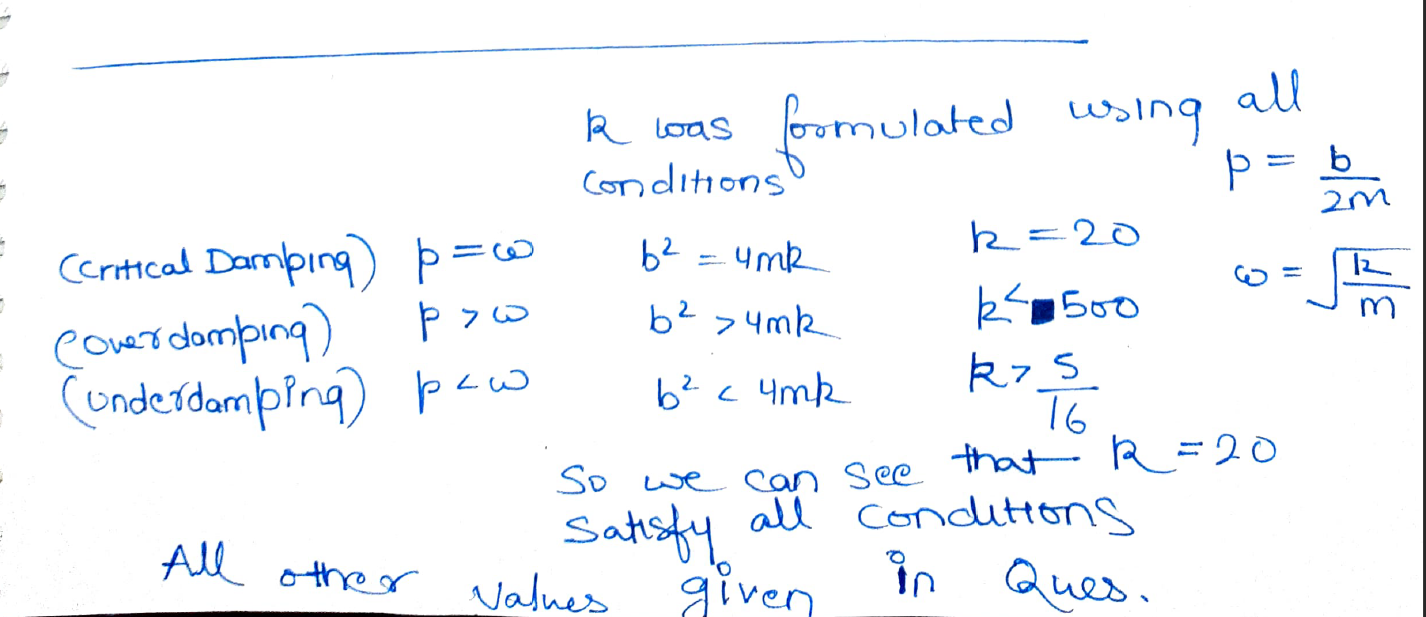 k was formulated using all
conditions
p = b/2m
(Critical Damping) p = ω b² = 4mk k = 20
ω = √(k/m)
(overdamping) p > ω b² > 4mk k < 500
(underdamping) p < ω b² < 4mk k > 5/16
So we can see that k = 20
Satisfy all conditions
All other values given in Ques.